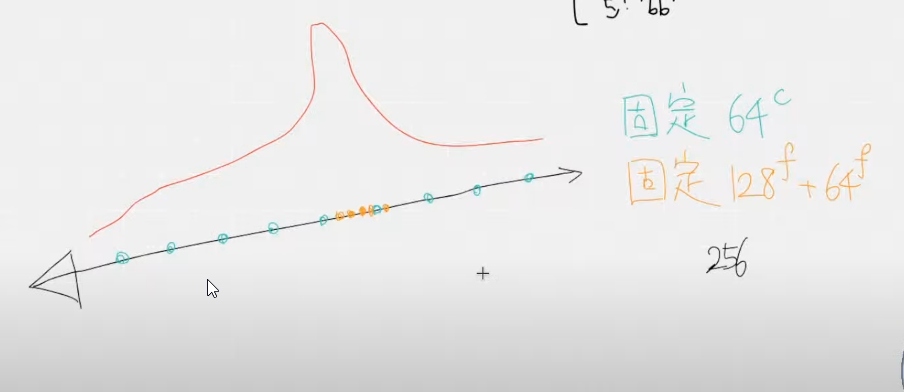 固定 64ᶜ
固定 128ᶠ + 64ᶠ
256